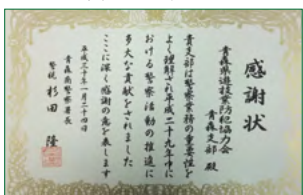 感謝状
青森県遊技業防犯協力会
青森支部 殿
貴支部は警察業務の重要性を
よく理解され平成二十九年中に
おける警察活動の推進に
多大な貢献をされました
ここに深く感謝の意を表します
平成三十年一月二十四日
青森南警察署長
警視 杉田 隆